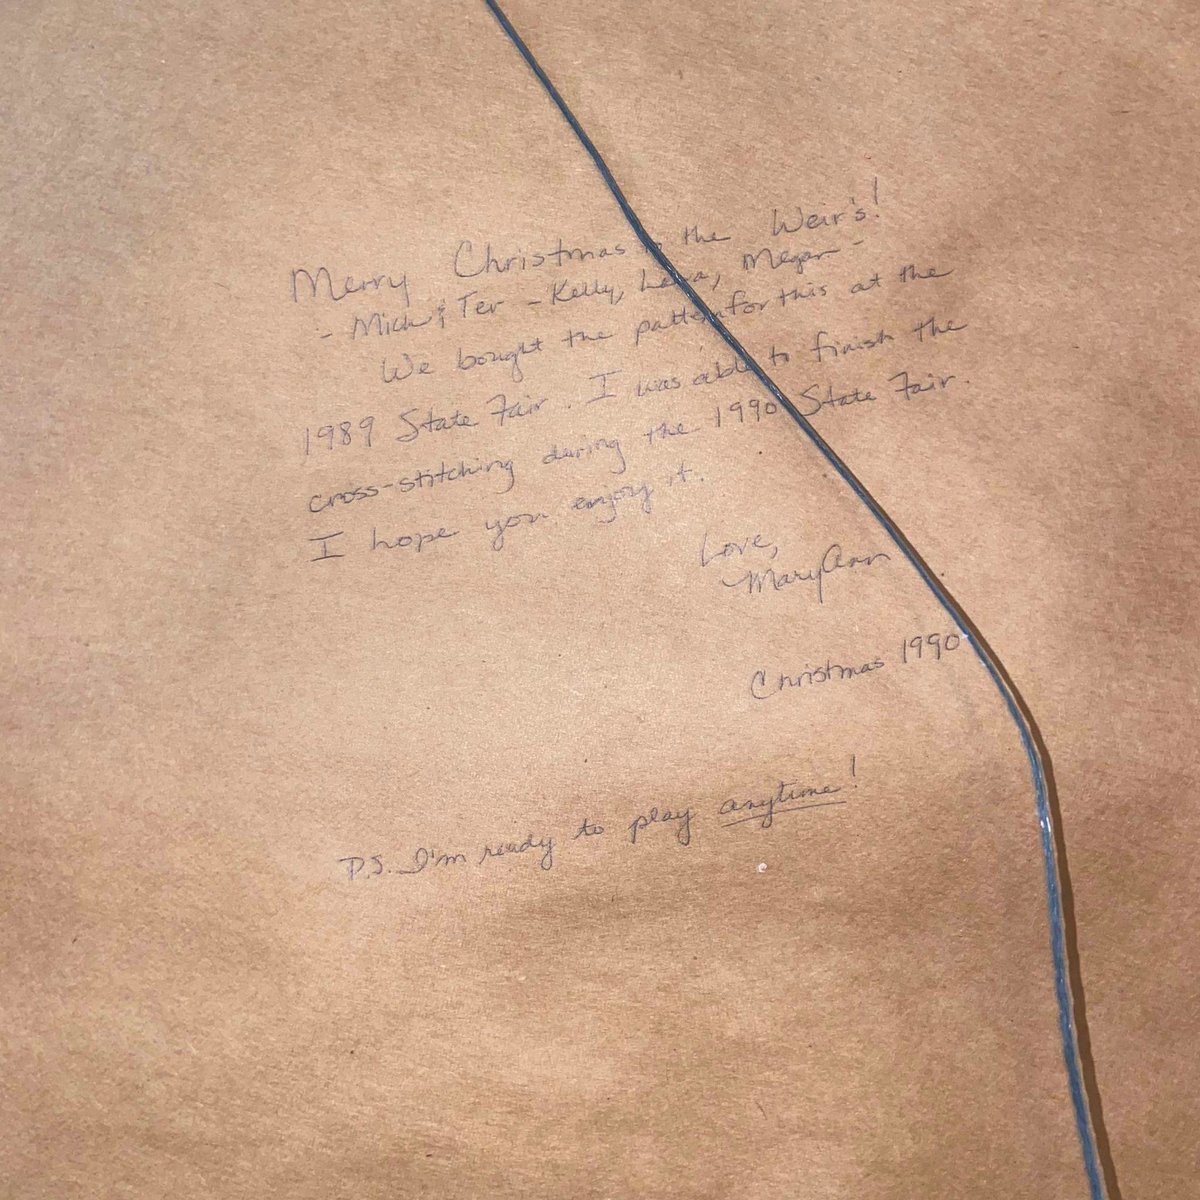 Merry Christmas to the Weir's!
- Mich & Ter - Kelly, , Megan -
We bought the pattern for this at the
1989 State Fair. I was able to finish the
cross-stitching during the 1990 State Fair.
I hope you enjoy it.
Love,
MaryAnn
Christmas 1990
P.S. I'm ready to play anytime!